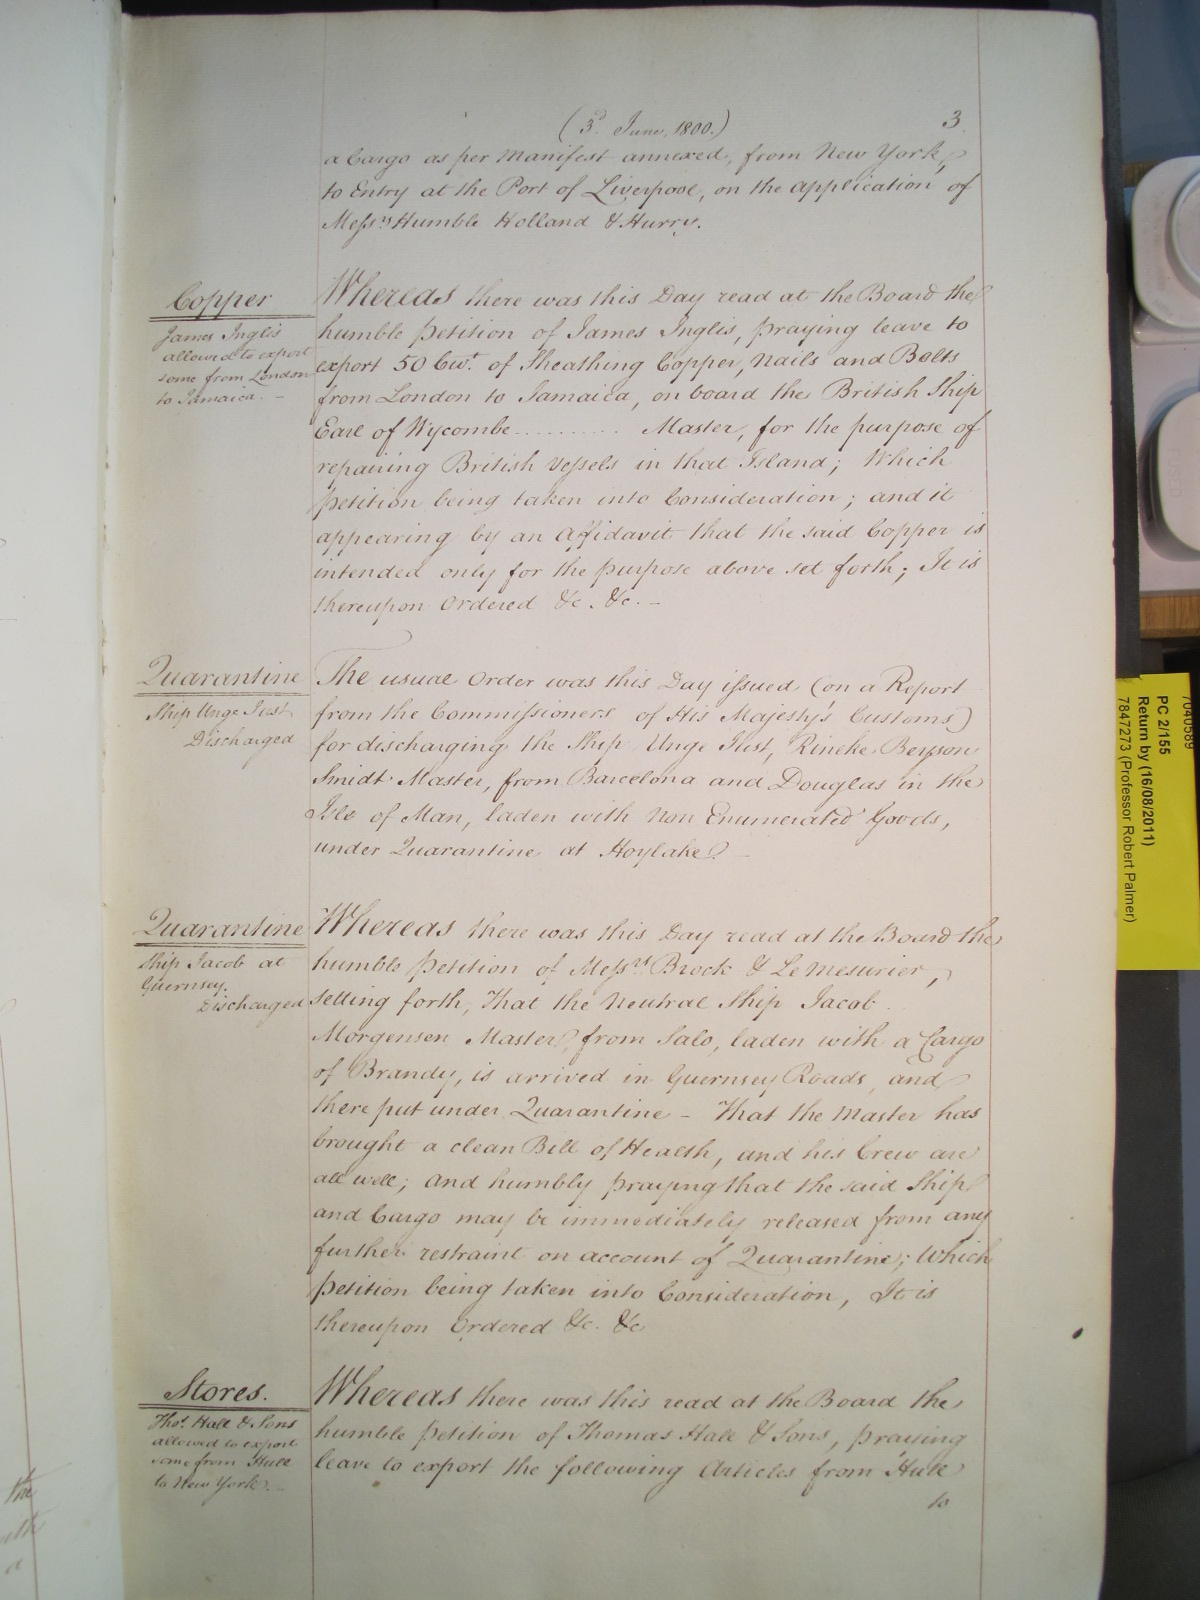 (3d. June, 1800.)
3
a Cargo as per Manifest annexed, from New York,
to Entry at the Port of Liverpool, on the application of
Messrs Humble Holland & Hurry.
Copper
James Inglis
allowed to export
some from London
to Jamaica. -
Whereas there was this Day read at the Board the
humble petition of James Inglis, praying leave to
export 50 Cwt. of Sheathing Copper, Nails and Bolts
from London to Jamaica, on board the British Ship
Earl of Wycombe.......... Master, for the purpose of
repairing British Vessels in that Island; Which
petition being taken into Consideration; and it
appearing by an Affidavit that the said Copper is
intended only for the purpose above set forth; It is
thereupon Ordered &c. &c. -
Quarantine
Ship Unge Just
Discharged
The usual Order was this Day issued (on a Report
from the Commissioners of His Majesty's Customs)
for discharging the Ship Unge Just, Rineke Beyson
Smidt Master, from Barcelona and Douglas in the
Isle of Man, laden with Non Enumerated Goods,
under Quarantine at Hoylake. -
Quarantine
Ship Jacob at
Guernsey.
Discharged
Whereas there was this Day read at the Board the
humble Petition of Messrs Brock & Le Mesurier,
setting forth, That the Neutral Ship Jacob
Morgensen Master, from Salo, laden with a Cargo
of Brandy, is arrived in Guernsey Roads, and
there put under Quarantine - That the Master has
brought a clean Bill of Health, and his Crew are
all well; and humbly praying that the said Ship
and Cargo may be immediately released from any
further restraint on account of Quarantine; Which
petition being taken into Consideration, It is
thereupon Ordered &c. &c
Stores.
Thos. Hall & Sons
allowed to export
some from Hull
to New York. -
Whereas there was this read at the Board the
humble petition of Thomas Hall & Sons, praying
leave to export the following Articles from Hull
to
the
with
a
7040589
PC 2/155
Return by (16/08/2011)
7847273 (Professor Robert Palmer)